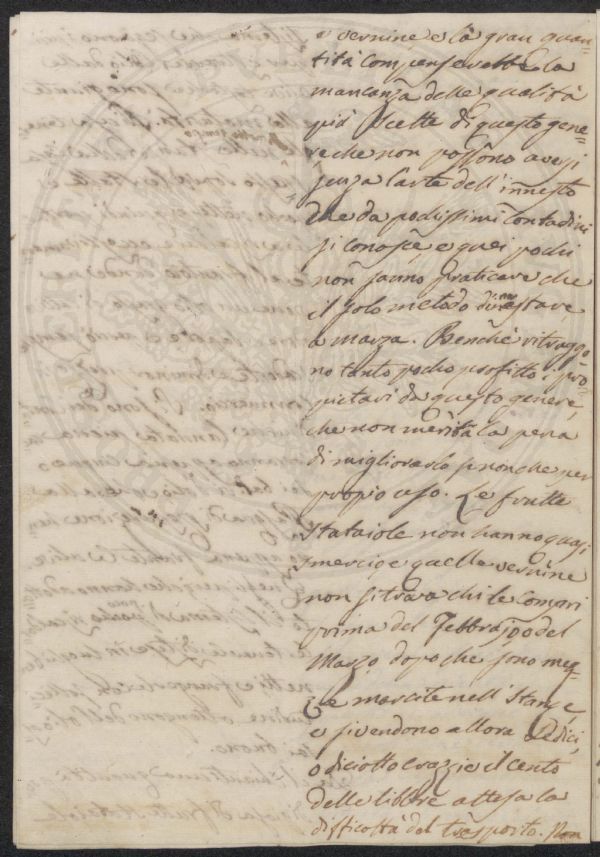 e vernine e la gran quan-
tità compenserebbe la
mancanza delle qualità
più scelte di questo gene=
re che non possono aversi
senza l'arte dell'innesto
che da pochissimi contadini
si conosce e quei pochi
non sanno praticare che
il solo metodo d'innestare
a marza. Benchè ritraggo
no tanto pocho profitto i pro=
pietari da questo genere,
che non merita la pena
di migliorarlo se non che per
proprio uso. Le frutte
stataiole non hanno quasi
smercio e quelle vernine
non si trova chi le compri
prima del Febbrajo o del
Marzo dopo che sono mez=
ze marcite nell'Stanze,
e si vendono allora sedici,
o diciotto crazzie il cento
delle libbre attesa la
difficoltà del trasporto. Non